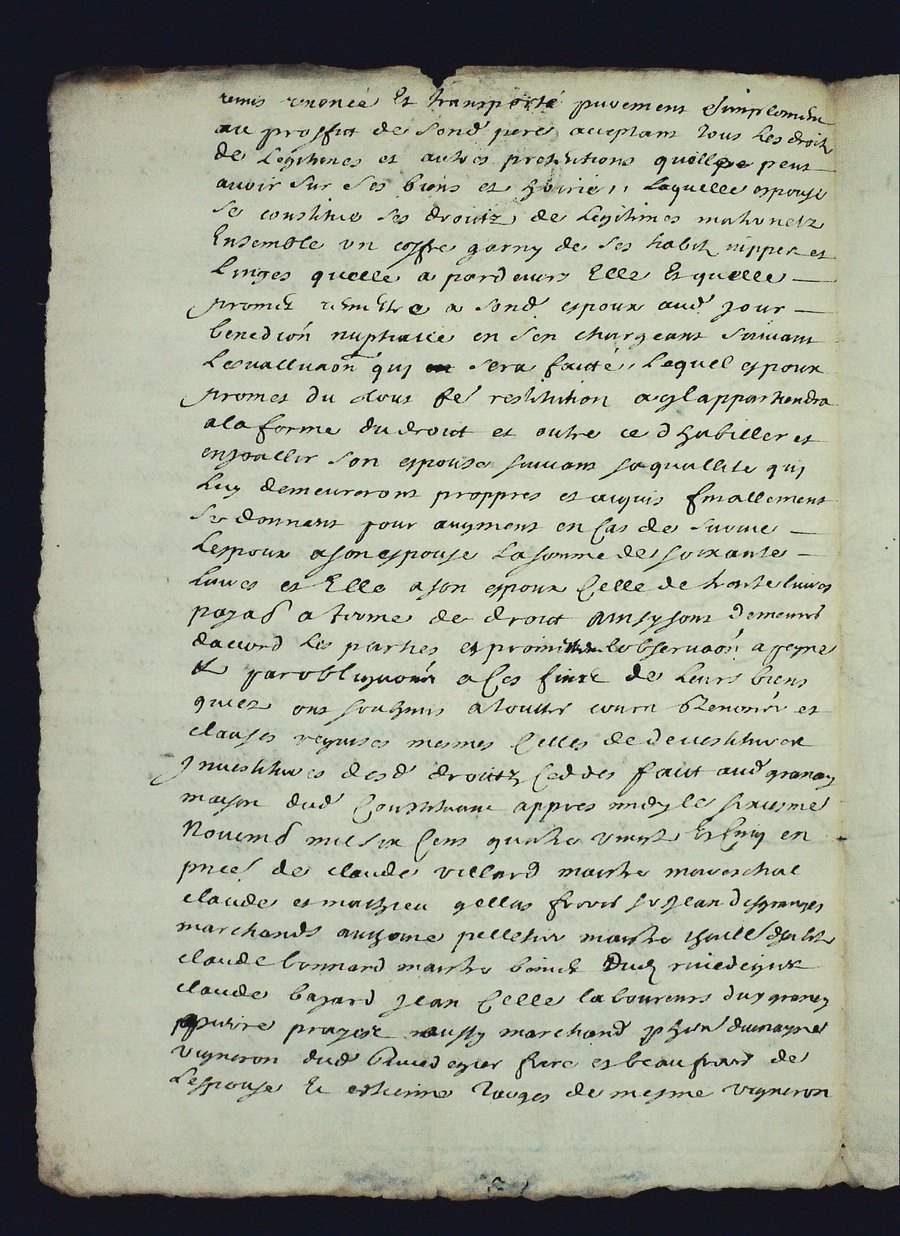 remis renoncé Et transporté purement & simplement
au proffict de sond pere acceptant tous Les droitz
de Legitimes et autres pretentions quelle peut
avoir sur ses biens et hoirie, Laquelle espouse
se constitue ses droitz de Legitimes maternelz
Ensemble un coffre garny de ses habitz nippes et
Linges quelle a pardevers Elle Et quelle
promet remettre a sond espoux aud jour
benediōn nuptialle en sen chargeant suivant
Lesvalluaōn quy sera faitte, Lequel espoux
promet du tout de restitution a quil appartiendra
a la forme du droict et outre ce d habiller et
enjoallir son espouse suivant sa quallité quy
Luy demeureront proppres et acquis finallement
se donnant pour augment en Cas de survie
Lespoux a son espouse La somme de soixante
Livres et Elle a son espoux Celle de trente livres
a forme de droict Ainsy sont demeurés
daccord Les parties et promis lobservaōn a peyne
& par obligaōns a Ces fins de Leurs biens
quiez ont soubzmis a touttes cours & Renonés et
clauses requises mesmes Celles de devestitures
Investitures desd droitz Ceddes faict aud granay
maison dud Constituant appres midy le sixiesme
Novemb mil six Cens quatre vingt Et Cinq en
pñce de claude villard maistre mareschal
claude et mathieu gellas freres sr Jean desgranges
marchands anthoine pelletier maistre
claude bonnard maistre dud rivedegier
claude bajard Jean Celle laboureurs dud granay
pierre prayere aussy marchand dumayne
vigneron dud Rivedegier frere et beau frere de
Lespouse & estienne de mesme vigneron